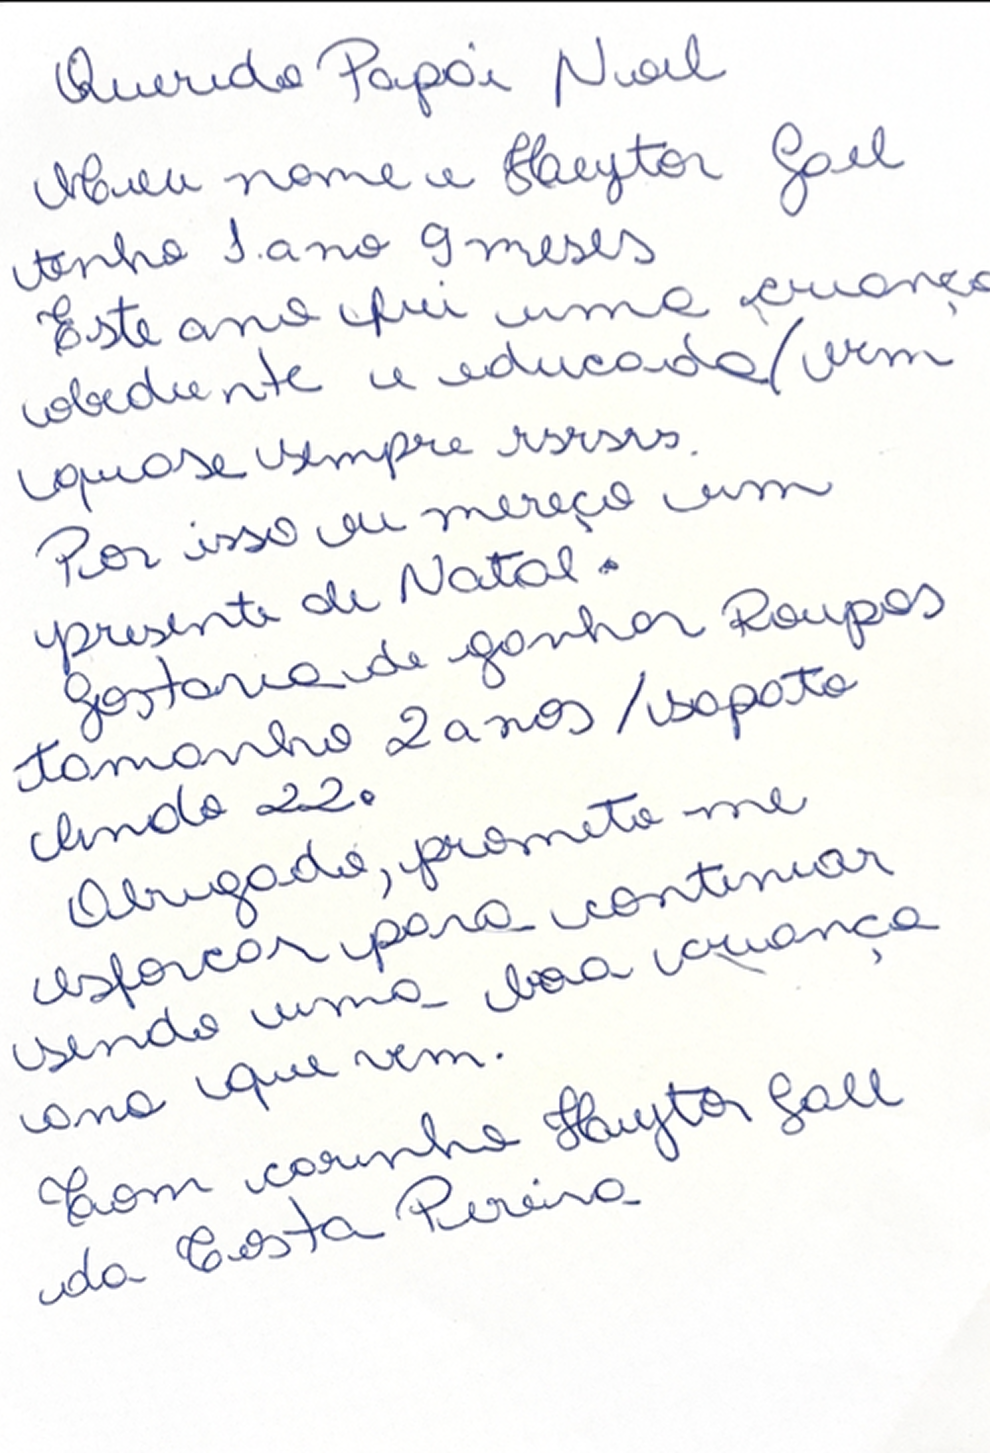 Querido Papai Noel
Meu nome e Heytor Gael
tenho 1 ano 9 meses
Este ano fui uma criança
obediente e educada/bem
quase sempre rsrsrs.
Por isso eu mereço um
presente de Natal.
Gostaria de ganhar Roupas
tamanho 2 anos /sapato
lindo 22.
Obrigado, prometo me
esforçar para continuar
sendo uma boa criança
ano que vem.
Com carinho Heytor Gael
da Costa Pereira